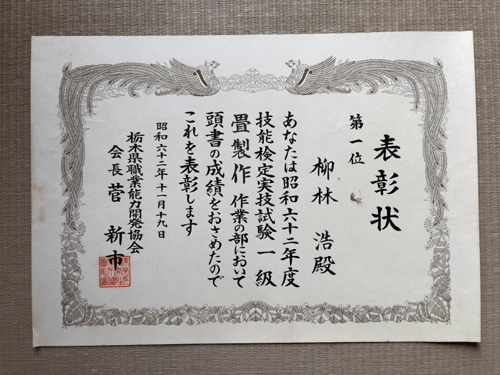 表彰状
第一位
柳林 浩殿
あなたは昭和六十二年度
技能検定実技試験 一級
畳製作 作業の部において
頭書の成績をおさめたので
これを表彰します
昭和六十二年十一月十九日
栃木県職業能力開発協会
会長 菅 新市